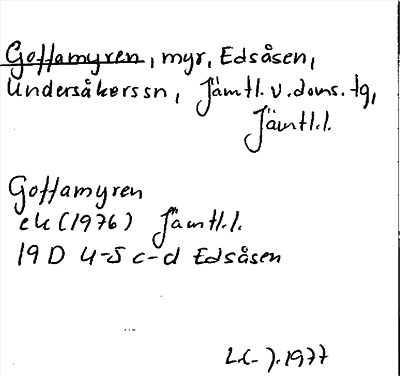 Goffamyren, myr, Edsåsen,
Undersåkerssn, Jämtl. v. doms. tg,
Jämtl.l.
Goffamyren
ek (1976) Jämtl.l.
19 D 4-5 c-d Edsåsen
1977